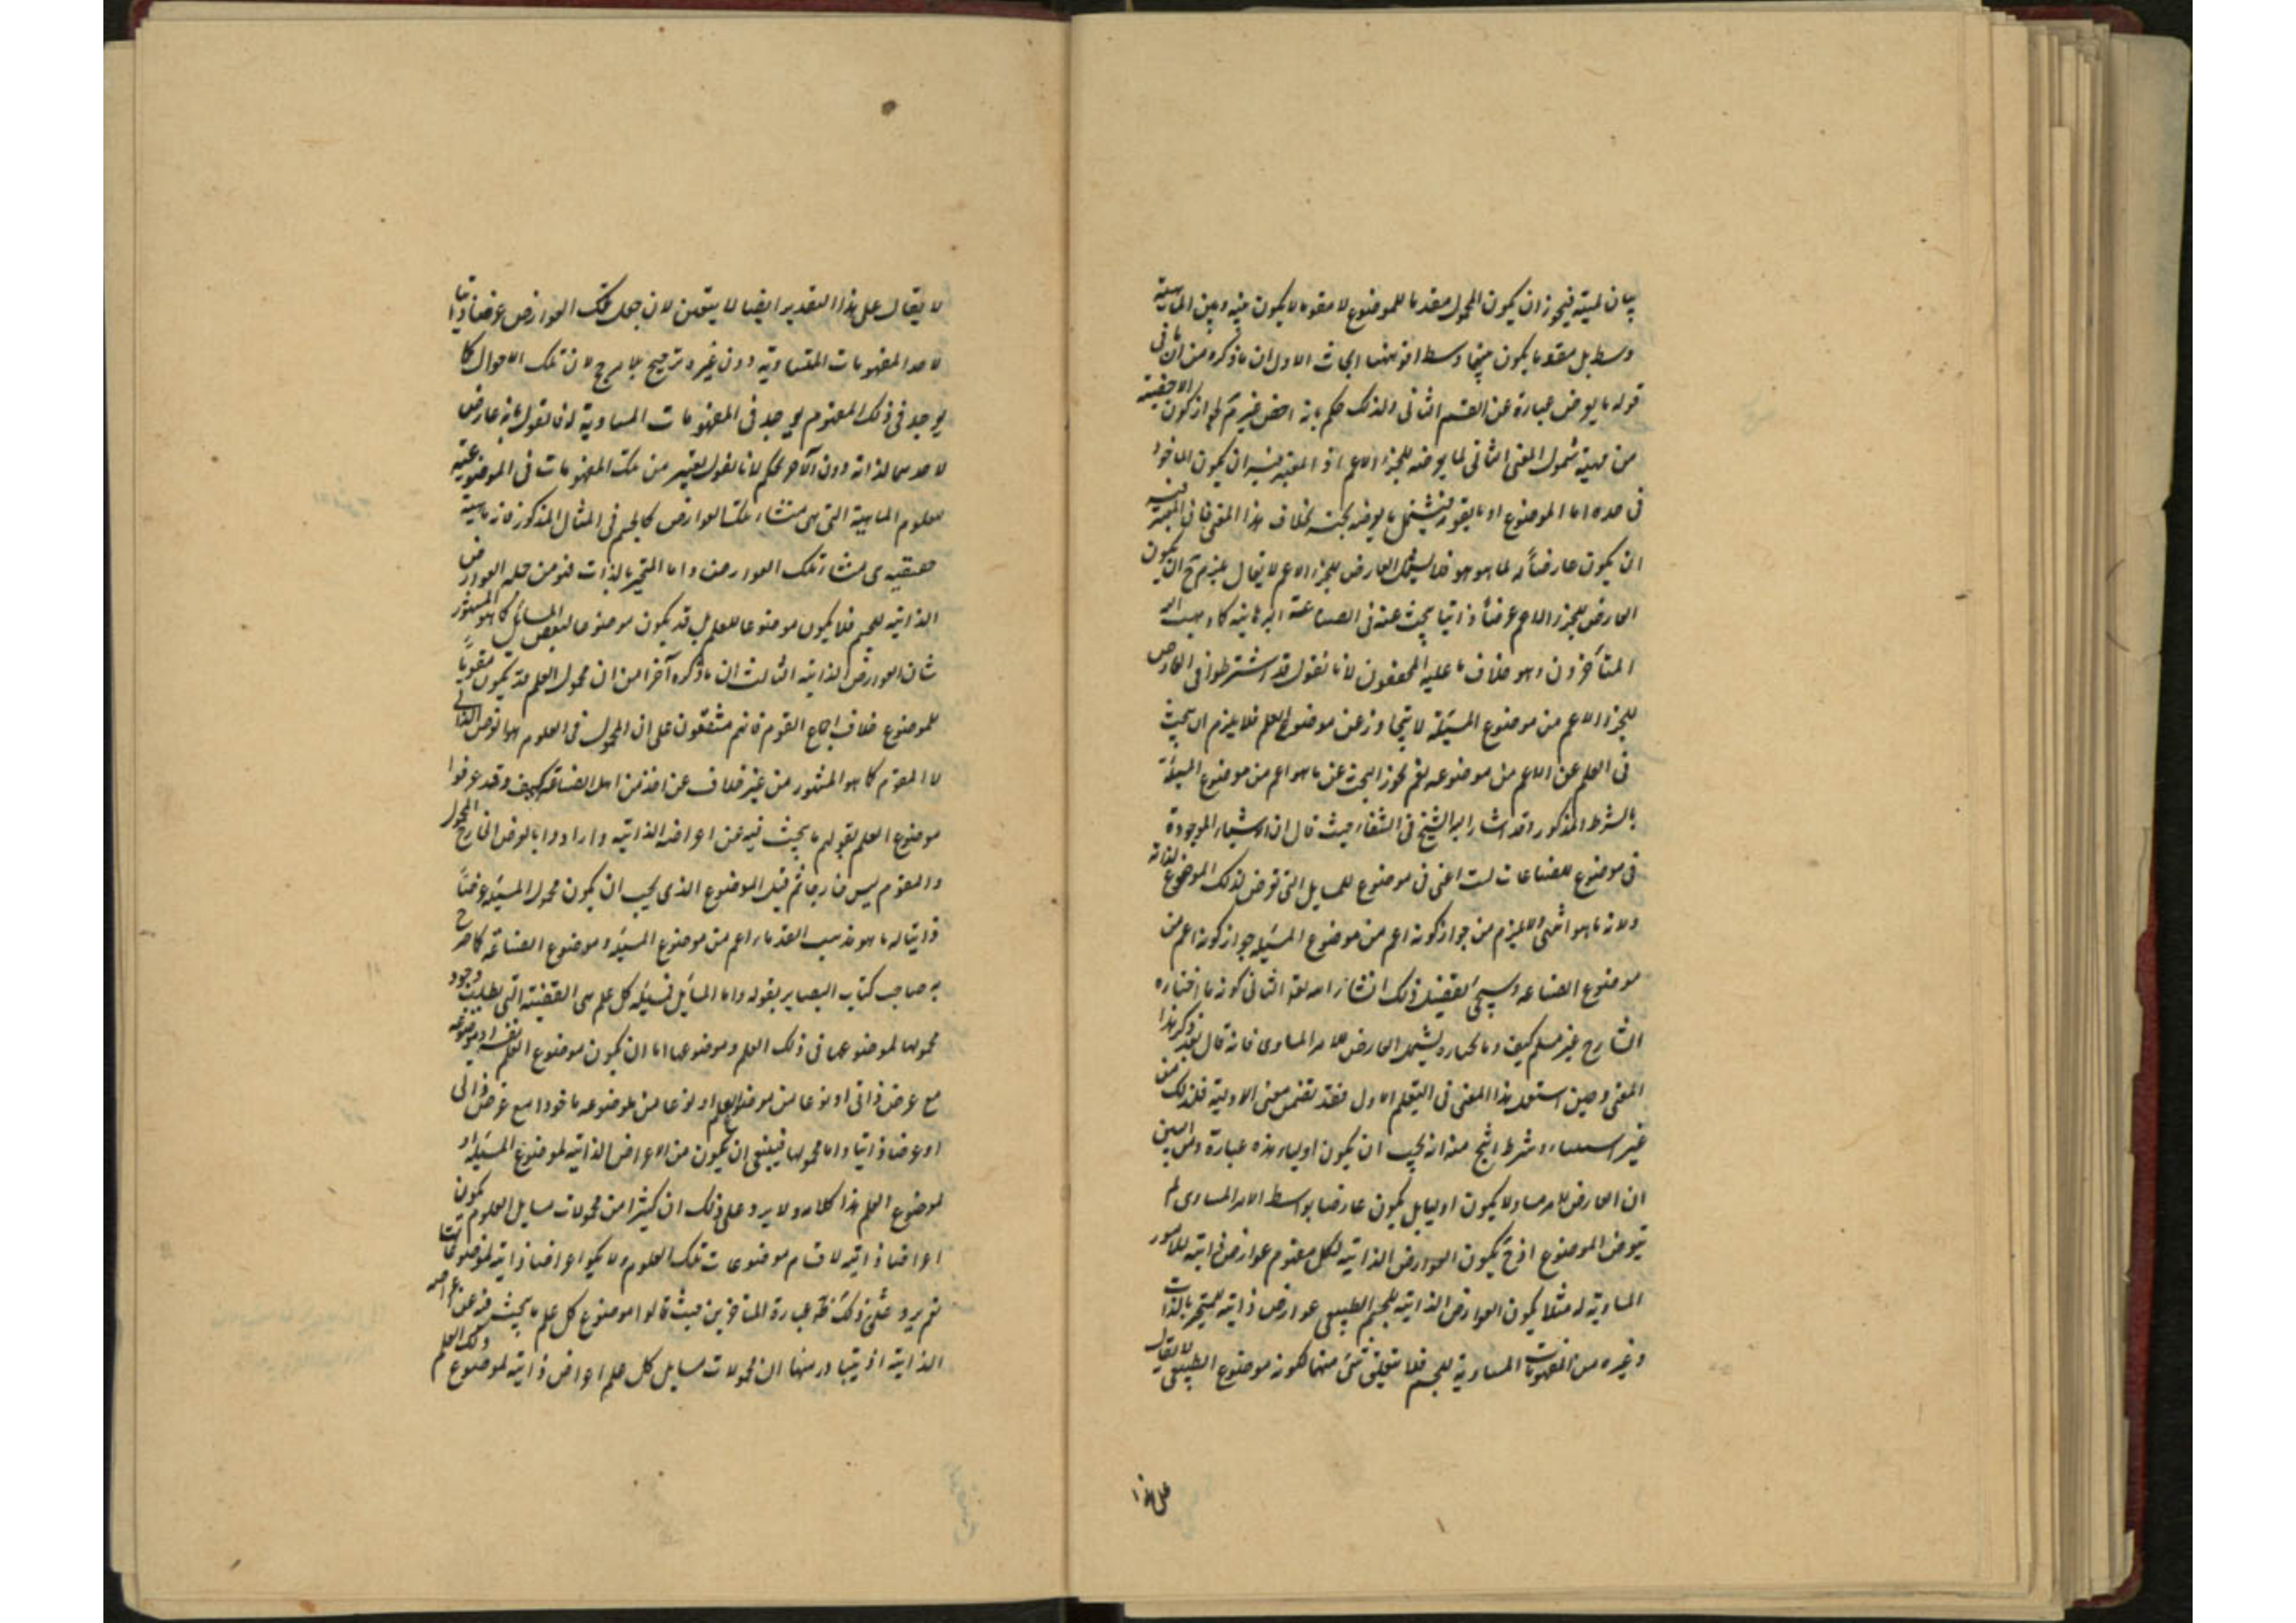 بيان لميته فيجوز ان يكون المحمول مقدما للموضوع لا مقوما لا يكون بينه وبين الماهية
وسط بل مقوما يكون بينها وسط اقول ههنا ابحاث الاول ان ما ذكره من ان في
قوله ما يعرض عبارة عن القسم الثاني ولذلك حكم بانه اخص غير مسلم لجواز كون الاحقية
من جهة شمول المعنى الثاني لما يعرضه للجزء الاعم اذ المعتبر فيه ان يكون الماخوذ
في حده اما الموضوع او ما يقومه فيشتمل ما يعرضه لجنسه بخلاف هذا المعنى فان المعتبر فيه
ان يكون عارضاً له لما هو هو فلا يشمل العارض للجزء الاعم لا يقال يلزم ح ان يكون
العارض للجزء الاعم عرضاً ذاتيا يبحث عنه في الصناعة البرهانية كما ذهب اليه
المتأخرون وهو خلاف ما عليه المحققون لانا نقول قد اشترطوا في العارض
للجزء الاعم من موضوع المسئلة لا يتجاوز عن موضوع العلم فلا يلزم ان يبحث
في العلم عن الاعم من موضوعه نعم يجوز البحث عن ما هو اعم من موضوع المسئلة
بالشرط المذكور وقد اشار اليه الشيخ في الشفاء حيث قال ان الاشياء الموجودة
في موضوع للصناعات لست اعني في موضوع للمسايل التي تعرض لذلك الموضوع لذاته
ولانه ما هو انتهى ولا يلزم من جواز كونه اعم من موضوع المسئلة جواز كونه اعم من
موضوع الصناعه وسيجئ تفصيل ذلك انشاء الله تعالى الثاني كون ما اختاره
الشارح غير مسلم كيف وما اختاره يشمل العارض للامر المساوى فانه قال بعد ذكر هذا
المعنى وحين استعمل هذا المعنى في التعلم الاول فقد تضمن معنى الاولية فلذلك من
غير استثناء وشرط انتج منه انه يجب ان يكون اوليا هذه عبارة ومن البين
ان العارض للامر مساو لا يكون اوليا بل يكون عارضا بواسط الامر المساوى لم
يعرض الموضوع اذ ح يكون العوارض الذاتية لكل مفهوم عوارض ذاتية للامور
المساوية له مثلا يكون العوارض الذاتية للجسم الطبيعى عوارض ذاتية للمتحيز بالذات
وغيره من المفهومات المساوية للجسم فلا يتعين شئ منهما لكونه موضوع الطبيعى لا يقال
على هذا
لا يقال على هذا التقدير ايضا لا يتعين لان جعل تلك العوارض عرضا ذاتيا
لاحد المفهومات المتساوية دون غيره ترجيح بلا مرجح لان تلك الاحوال كما
يوجد في ذلك المفهوم يوجد في المفهومات المساوية له فالقول بانه عارض
لاحدهما لذاته دون الآخر تحكم لانا نقول يعتبر من تلك المفهومات في الموضوعية
مفهوم الماهية التي هى منشاء تلك العوارض كالجسم في المثال المذكور فانه ماهية
حقيقيه هى منشاء تلك العوارض واما المتحيز بالذات فهو من جمله العوارض
الذاتيه للجسم فلا يكون موضوعا للعلم بل قد يكون موضوعا لبعض المسايل كما هو المشهور
شان العوارض الذاتية الثالث ان ما ذكره آخرا من ان محمول العلم قد يكون مقوماً
للموضوع خلاف اجماع القوم فانهم متفقون على ان المحمول في العلوم هو العرض الذاتى
لا المقوم كما هو المشهور من غير خلاف عن احد من اهل الصناعه كيف وقد عرفوا
موضوع العلم بقولهم ما يبحث فيه عن اعراضه الذاتيه وارادوا بالعرض الخارج المحمول
والمقوم ليس خارجا ثم قيل الموضوع الذى يجب ان يكون محمول المسئله عرضاً
ذاتيا له ما هو مذهب القدماء اعم من موضوع المسئله وموضوع الصناعه كما صرح
به صاحب كتاب البصاير بقوله واما المسائل فمسئلة كل علم هى القضية التي يطلب وجود
محمولها لموضوعها في ذلك العلم وموضوعها اما ان يكون موضوع العلم نفسه او موضوعه
مع عرض ذاتى او نوعا من موضوع العلم او نوعا من موضوعه ماخوذا مع عرض ذاتى
او عرضا ذاتيا واما محمولها فينبغى ان يكون من الاعراض الذاتيه لموضوع المسئله او
لموضوع العلم هذا كلامه ولا يرد على ذلك ان كثيرا من محمولات مسايل العلوم يكون
اعراضا ذاتيه لاقسام موضوعات تلك العلوم ولا يكون اعراضا ذاتية لموضوعاتها
نعم يرد على ذلك ظاهر عبارة المتاخرين حيث قالوا موضوع كل علم ما يبحث فيه عن اعراضه
الذاتية اذ يتبادر منها ان محمولات مسايل كل علم اعراض ذاتية لموضوع ذلك العلم